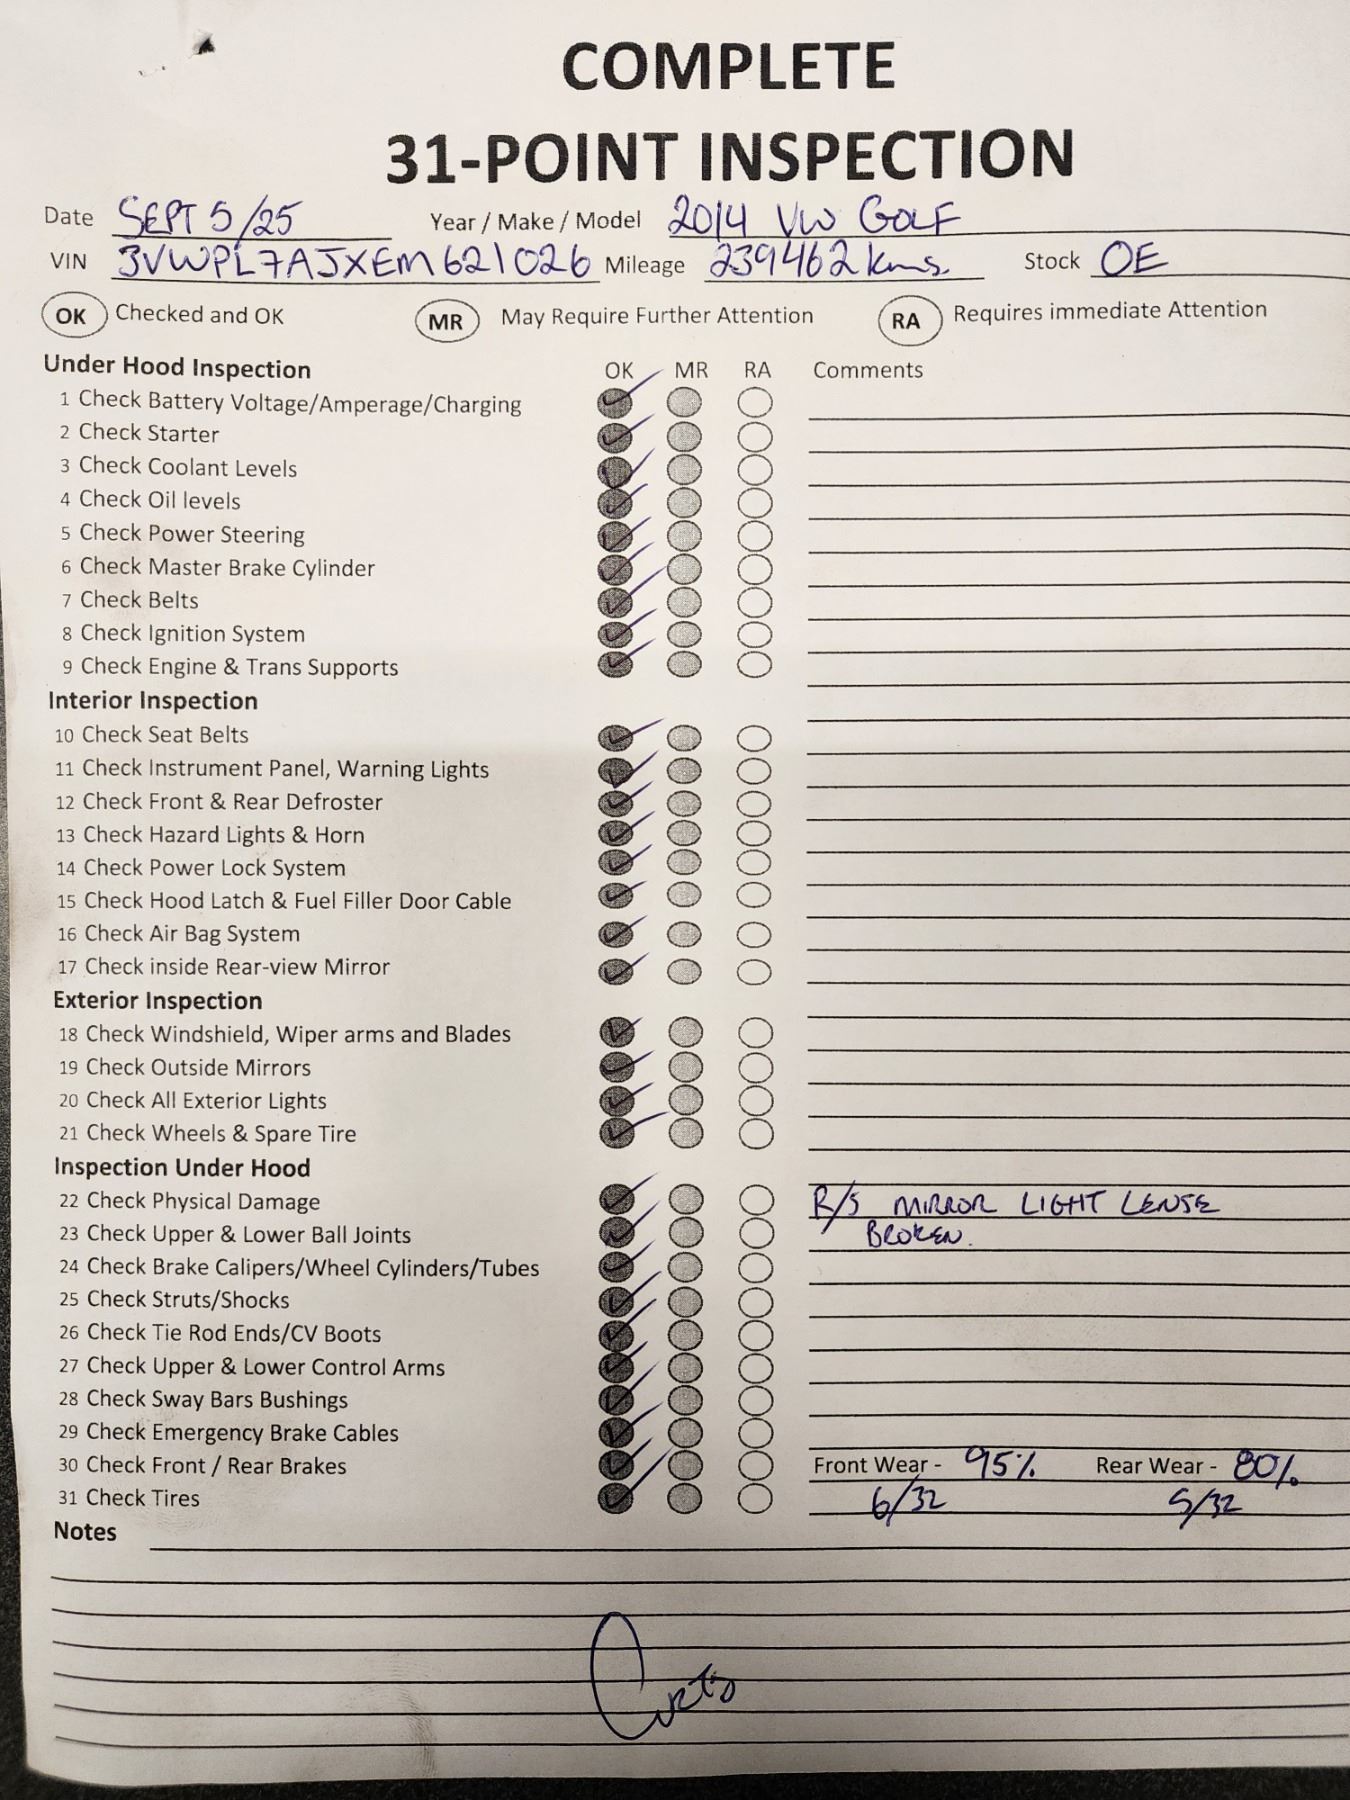 COMPLETE
31-POINT INSPECTION
Date SEPT 5/25 Year / Make / Model 2014 VW GOLF
VIN 3VWPL7AJXEM621026 Mileage 239462 kms. Stock OE
OK Checked and OK MR May Require Further Attention RA Requires immediate Attention
Under Hood Inspection OK MR RA Comments
1 Check Battery Voltage/Amperage/Charging
2 Check Starter
3 Check Coolant Levels
4 Check Oil levels
5 Check Power Steering
6 Check Master Brake Cylinder
7 Check Belts
8 Check Ignition System
9 Check Engine & Trans Supports
Interior Inspection
10 Check Seat Belts
11 Check Instrument Panel, Warning Lights
12 Check Front & Rear Defroster
13 Check Hazard Lights & Horn
14 Check Power Lock System
15 Check Hood Latch & Fuel Filler Door Cable
16 Check Air Bag System
17 Check inside Rear-view Mirror
Exterior Inspection
18 Check Windshield, Wiper arms and Blades
19 Check Outside Mirrors
20 Check All Exterior Lights
21 Check Wheels & Spare Tire
Inspection Under Hood
22 Check Physical Damage R/S MIRROR LIGHT LENSE
23 Check Upper & Lower Ball Joints BROKEN.
24 Check Brake Calipers/Wheel Cylinders/Tubes
25 Check Struts/Shocks
26 Check Tie Rod Ends/CV Boots
27 Check Upper & Lower Control Arms
28 Check Sway Bars Bushings
29 Check Emergency Brake Cables
30 Check Front / Rear Brakes Front Wear - 95% Rear Wear - 80%
31 Check Tires 6/32 5/32
Notes